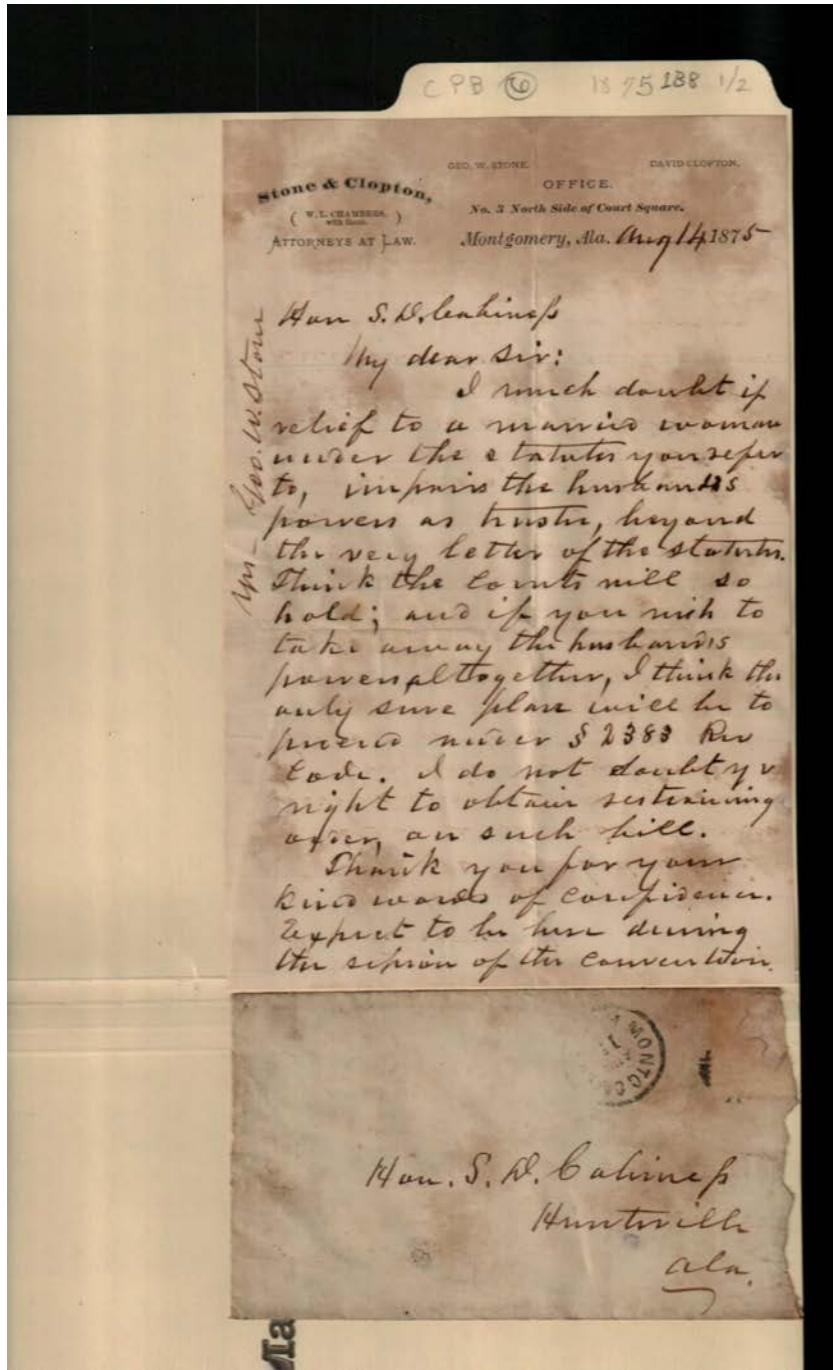 CPB 6 1875 188 1/2
GEO. W. STONE. DAVID CLOPTON.
Stone & Clopton,
( W. L. CHAMBERS, with them. )
ATTORNEYS AT LAW.
OFFICE.
No. 3 North Side of Court Square.
Montgomery, Ala. Aug 14 1875
Hon S. D. Cabiness
My dear Sir:
I much doubt if
relief to a married woman
under the statutes you refer
to, impairs the husbands
powers as trustee, beyond
the very letter of the statutes.
Think the Courts will so
hold; and if you wish to
take away the husbands
powers altogether, I think the
only sure plan will be to
proceed under § 2383 Rev
Code. I do not doubt yr
right to obtain restraining
order, on such bill.
Thank you for your
kind words of confidence.
Expect to be here during
the session of the Convention.
Yrs — Geo. W. Stone
MONTGO
Hon. S. D. Cabiness
Huntsville
Ala.
Ma